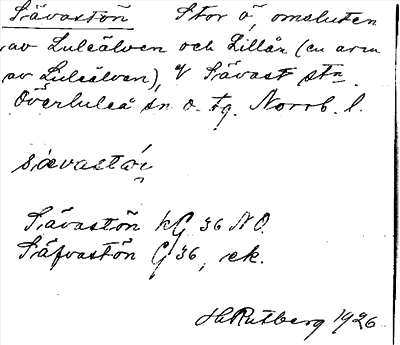 Sävastön Stor ö, omsluten
av Luleälven och Lillån (en arm
av Luleälven), V Sävast stn.
Överluleå sn o. tg. Norrb. l.
Sävastön kG 36 NO.
Säfvastön G 36, ek.
H Rutberg 1926